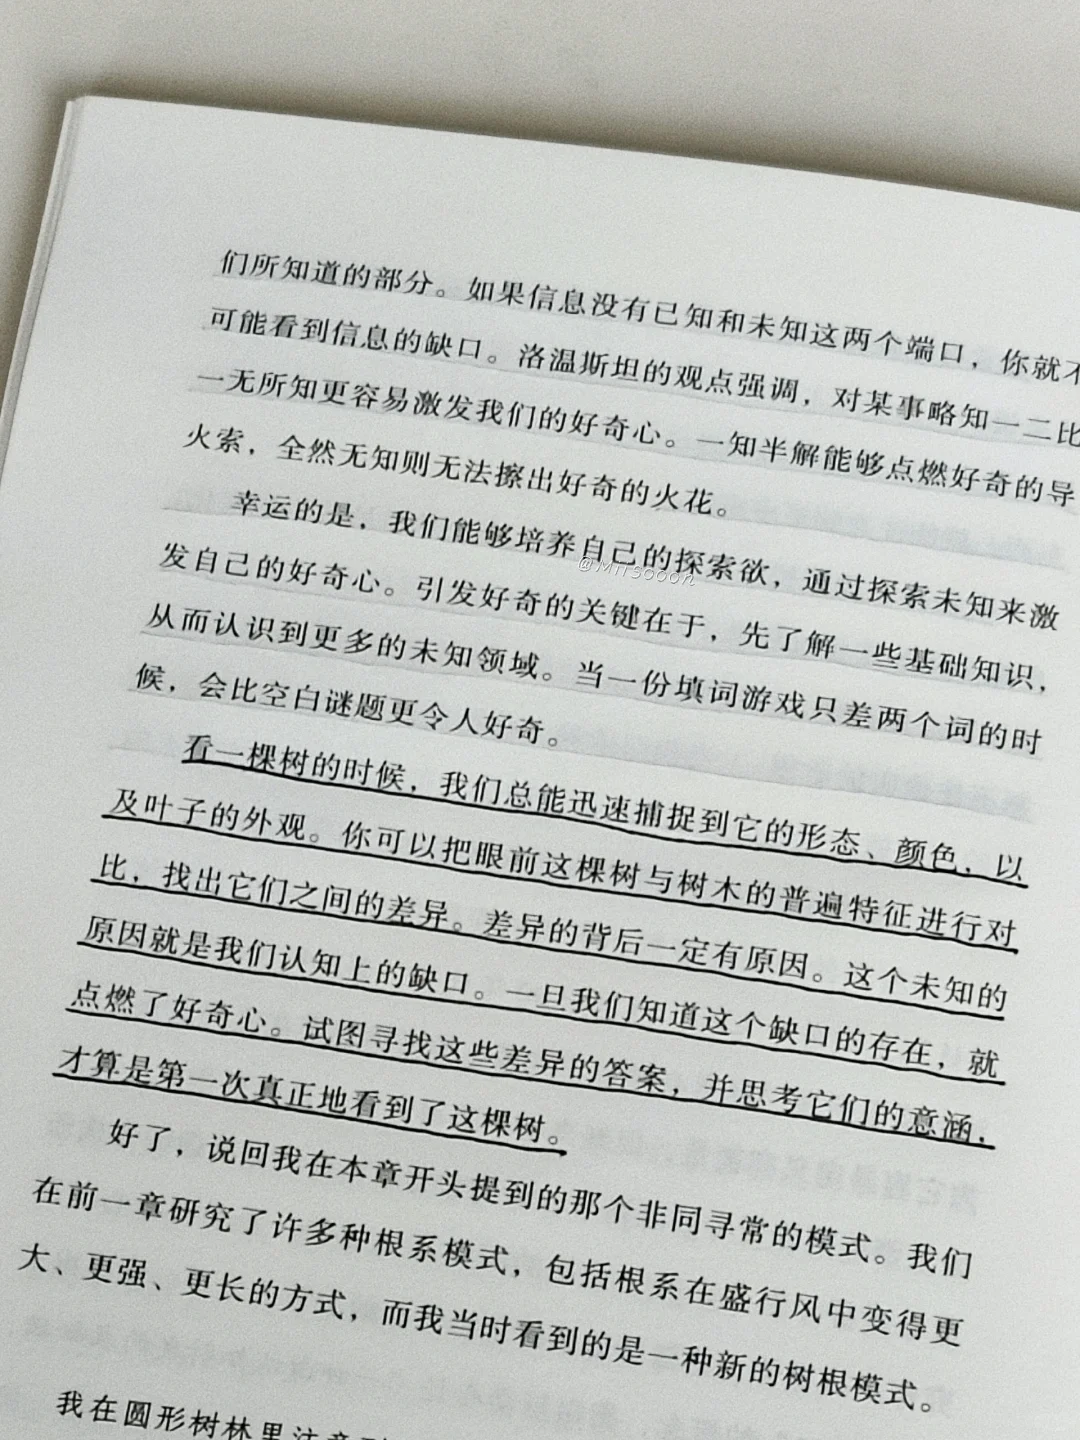 们所知道的部分。如果信息没有已知和未知这两个端口，你就不
可能看到信息的缺口。洛温斯坦的观点强调，对某事略知一二比
一无所知更容易激发我们的好奇心。一知半解能够点燃好奇的导
火索，全然无知则无法擦出好奇的火花。
幸运的是，我们能够培养自己的探索欲，通过探索未知来激
@Mrrsooon
发自己的好奇心。引发好奇的关键在于，先了解一些基础知识，
从而认识到更多的未知领域。当一份填词游戏只差两个词的时
候，会比空白谜题更令人好奇。
看一棵树的时候，我们总能迅速捕捉到它的形态、颜色，以
及叶子的外观。你可以把眼前这棵树与树木的普遍特征进行对
比，找出它们之间的差异。差异的背后一定有原因。这个未知的
原因就是我们认知上的缺口。一旦我们知道这个缺口的存在，就
点燃了好奇心。试图寻找这些差异的答案，并思考它们的意涵，
才算是第一次真正地看到了这棵树。
好了，说回我在本章开头提到的那个非同寻常的模式。我们
在前一章研究了许多种根系模式，包括根系在盛行风中变得更
大、更强、更长的方式，而我当时看到的是一种新的树根模式。
我在圆形树林里注意到